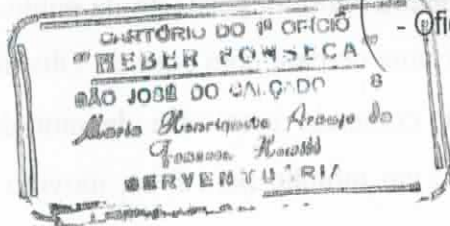 CARTÓRIO DO 1º OFÍCIO
- Ofi
"HEBER FONSECA"
SÃO JOSÉ DO CALÇADO
Maria Henriqueta Araujo da
Fonseca
SERVENTUÁRIA